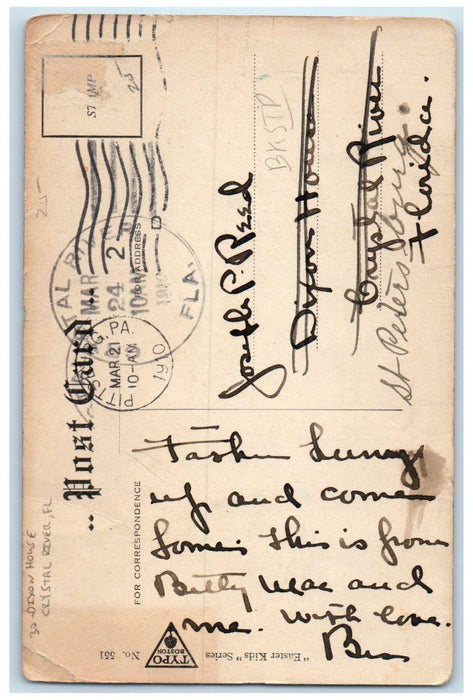 STAMP
25
25-
CRYSTAL RIVER
MAR
24
2
10AM
FLA.
PITTSBURG, PA.
MAR 21
10-AM
1910
.. Post Card ..
FOR ADDRESS
BKSTP
Joseph P. Reed
Dixon House
Crystal River
St Petersburg.
Florida.
FOR CORRESPONDENCE
up and come
home. this is from
Betty Mae and
me. with love.
Bess
30-DIXON HOUSE
CRYSTAL RIVER, FL
TYPO
BOSTON
"Easter Kids" Series
No. 551